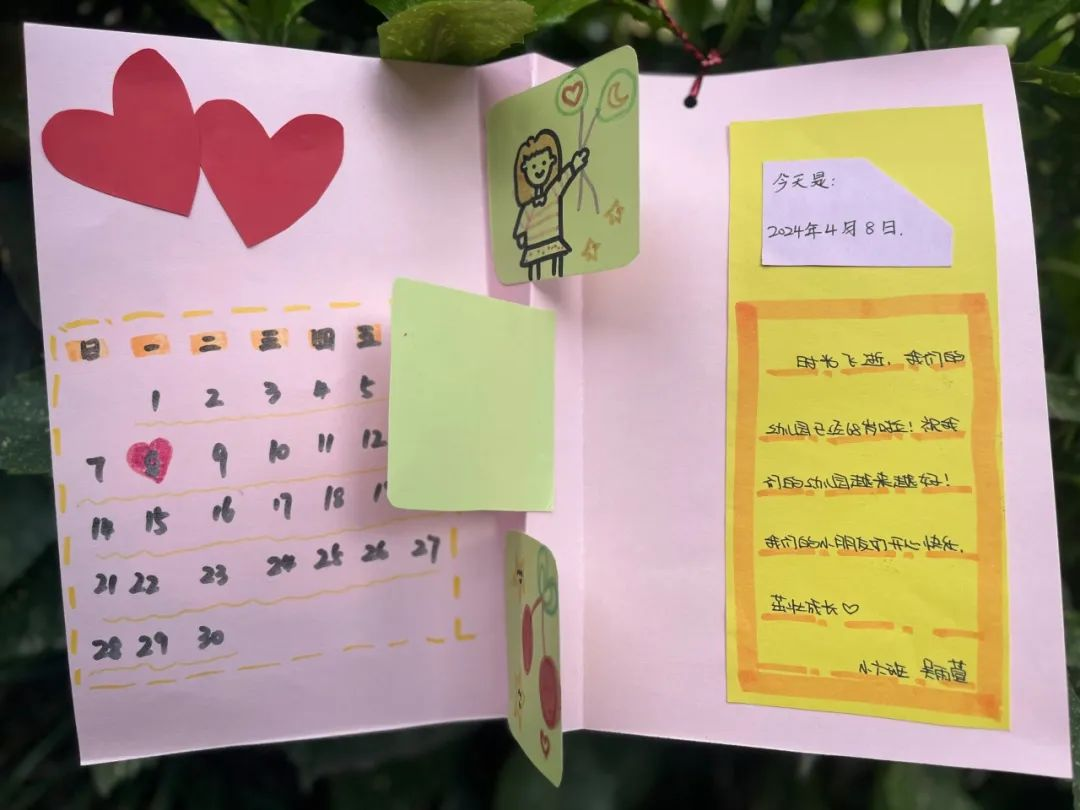 今天是:
2024年4月8日.
日 一 二 三 四 五
1 2 3 4 5
7 8 9 10 11 12
14 15 16 17 18
21 22 23 24 25 26 27
28 29 30
我们的
幼儿园已经8岁啦!祝我
们的幼儿园越来越好!
我们的小朋友们开心快乐,
茁壮成长♡